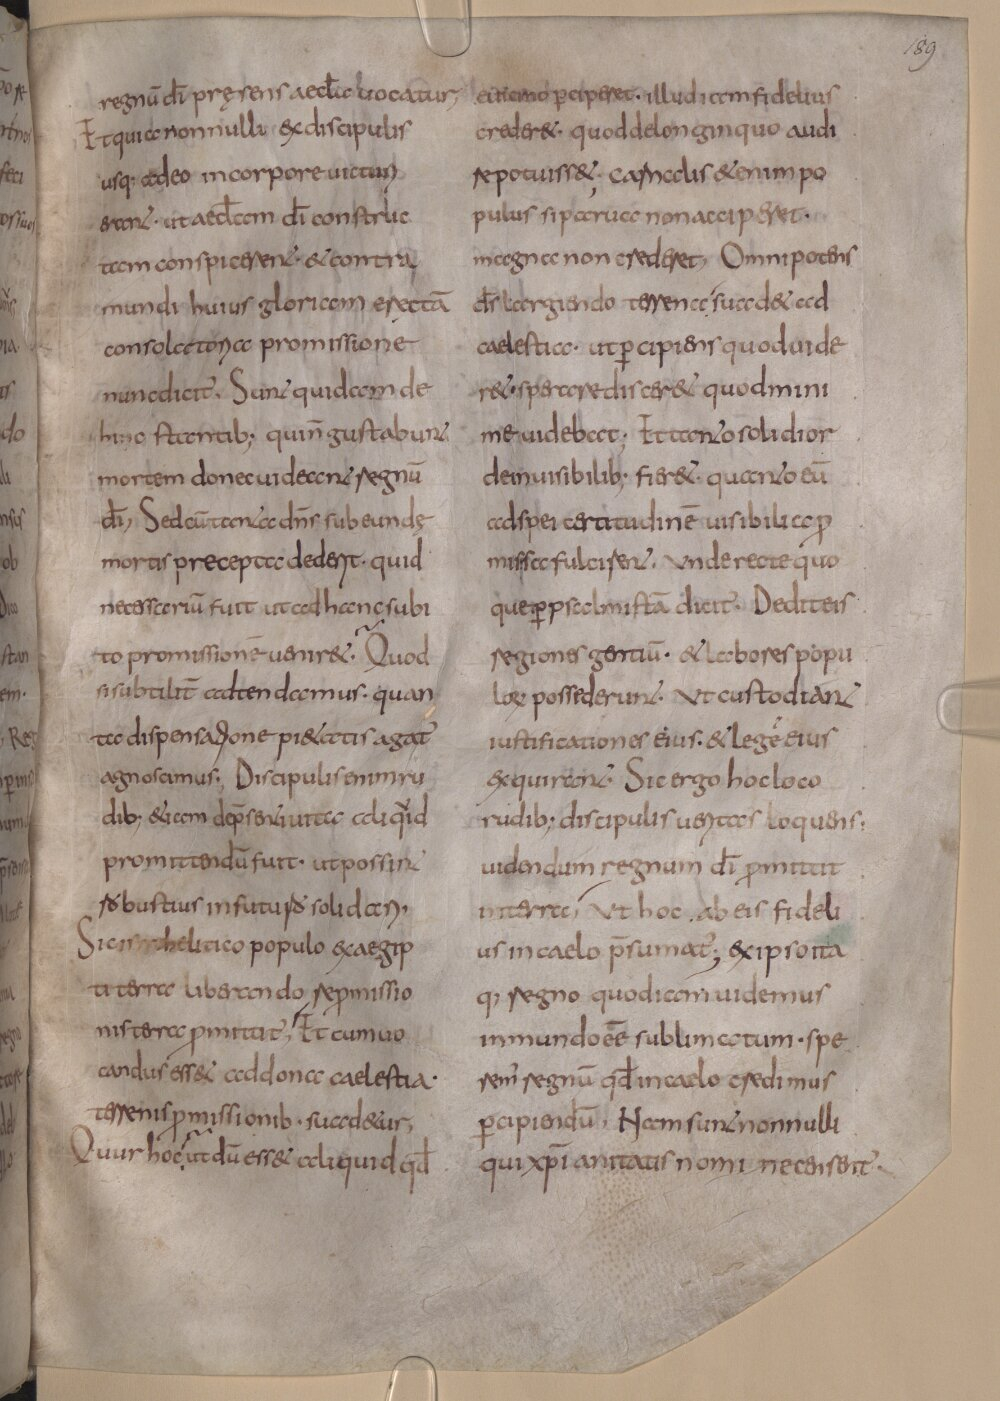 189
regnū dī pręsens aeccłia uocatur;
Et quia nonnulli ex discipulis
usq; adeo in corpore uicturi
erant· ut aeccłam dī construc
tam conspicerent· & contra
mundi huius gloriam erectā
consolatoria promissione
nunc dicit̄· Sunt quidam de
hinc stantib; qui n̄ gustabunt
mortem donec uideant regnū
dī; Sed cū tanta dn̄s subeundę
mortis precepta dederit· quid
necessariū fuit ut ad hanc subi
to promissionē uenir&· Quod
si subtilit̄ adtendamus· quan
ta dispensatione pi&atis agat̄
agnoscimus; Discipulis enim ru
dib; &iam de p̄senti uita aliquid
promittendū fuit· ut possint
robustius in futuro solidari·
Sic israhelitico populo ex aegip
ti terra liberando repromissio
nis terra promittit̄; Et cum uo
candus ess& ad dona caelestia·
terrenis promissionib· suad&ur;
Quur hoc; ut dū ess& aliquid qđ
e uicino perciper&· illud iam fidelius
creder&· quod de longinquo audi
re potuiss&; Carnalis &enim po
pulus si parua non acciper&·
magna non creder&; Omnipotens
dī largiendo terrena suad& ad
caelestia· ut percipiens quod uide
r&· sperare discer& quod mini
me uideb&at; Et tanto solidior
de inuisibilib; fier&· quanto eū
ad spei certitudinē uisibilia pro
missa fulcirent· Unde recte quo
que per psalmistā dicit̄· Dedit eis
regiones gentiū· & labores popu
lorum possederunt· Ut custodiant
iustificationes eius· & legē eius
exquirant· Sic ergo hoc loco
rudib; discipulis ueritas loquens;
uidendum regnum dī promittit
in terra; Ut hoc ab eis fideli
us in caelo p̄sumat̄; Ex ipso ita
q; regno quod iam uidemus
in mundo eē sublimatum· spe
rem̄ regnū qđ in caelo credimus
percipiendū; Nam sunt nonnulli
qui xp̄ianitatis nomine censent̄·